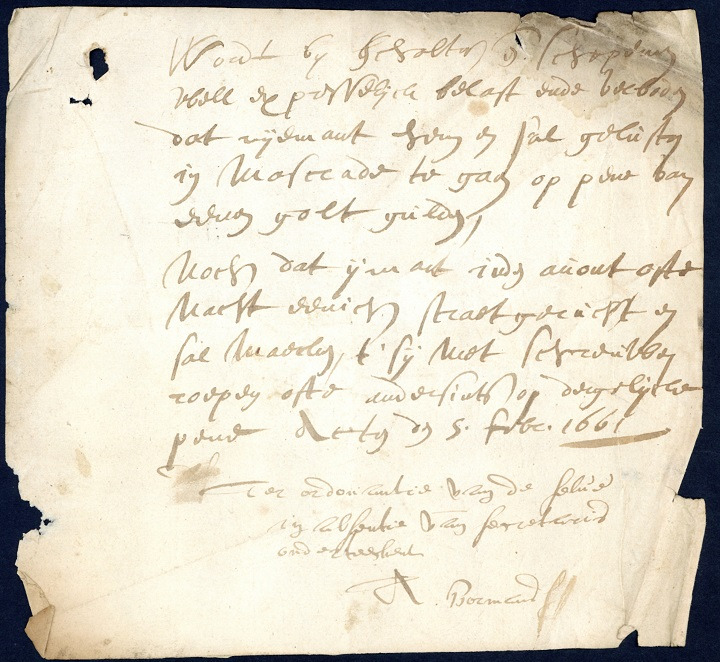 Wordt by Scholtis ē Schepenen
well expresselijck belast ende verboden
dat nijemant hem en sal gelusten
in Mascrade te gaen op pene van
eenen golt gulden,
Noch dat ijmant inden auont ofte
Nacht eenich straetgerucht en
sal Maecken, t'sij Met Schreuwen
roepen ofte andersints op dergelijcke
pene Actū den 5. febr. 1661
Ter ordonantie van de selue
in absentie van secretaris
onderteekent
A. Bormans